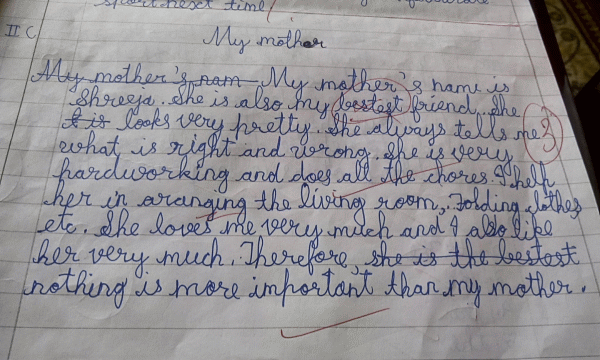 sport next time
II C
My mother
My mother's nam My mother's name is
Shreeja. She is also my bestest friend. She
is looks very pretty. She always tells me
3
what is right and wrong. She is very
hardworking and does all the chores. I help
her in aranging the living room, Folding clothes
etc. She loves me very much and I also like
her very much. Therefore, she is the bestest
nothing is more important than my mother.